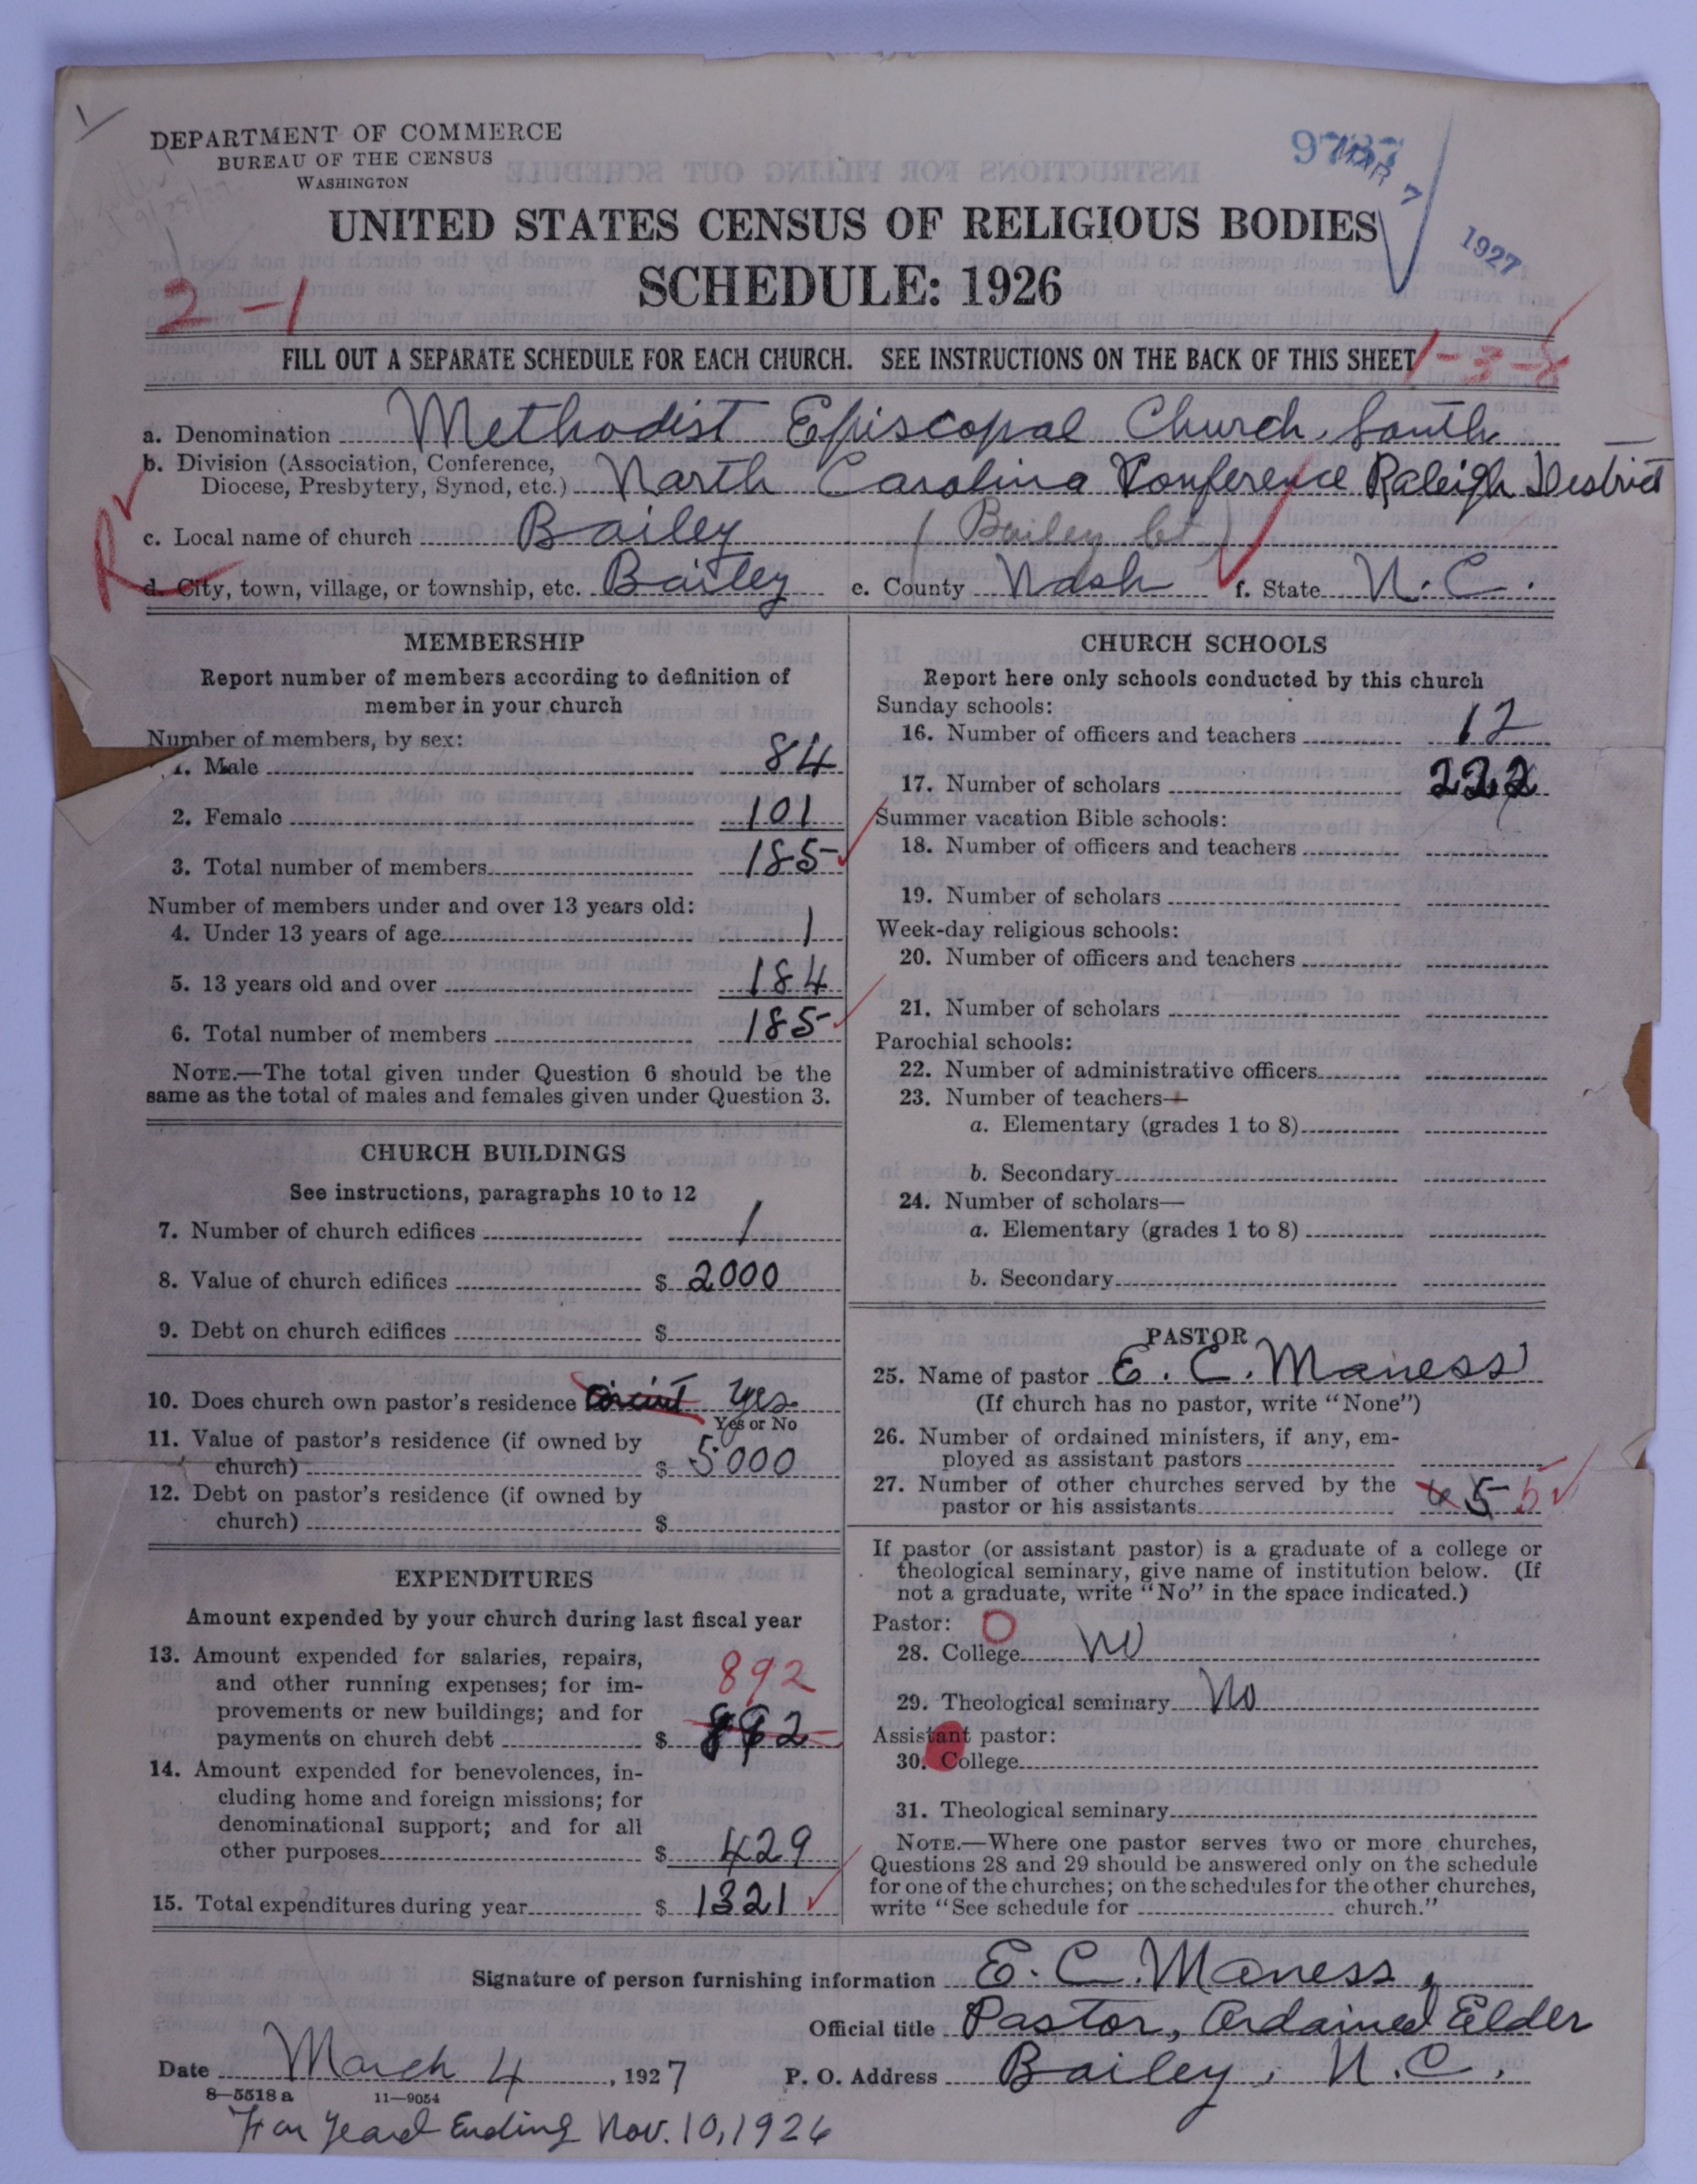 DEPARTMENT OF COMMERCE
BUREAU OF THE CENSUS
WASHINGTON
9737
MAR 7 1927
UNITED STATES CENSUS OF RELIGIOUS BODIES
SCHEDULE: 1926
2-1
FILL OUT A SEPARATE SCHEDULE FOR EACH CHURCH. SEE INSTRUCTIONS ON THE BACK OF THIS SHEET
1-3-8
a. Denomination Methodist Episcopal Church, South
b. Division (Association, Conference, Diocese, Presbytery, Synod, etc.) North Carolina Conference Raleigh District
R
c. Local name of church Bailey (Bailey Ct.)
d. City, town, village, or township, etc. Bailey e. County Nash f. State N.C.
MEMBERSHIP
Report number of members according to definition of
member in your church
Number of members, by sex:
1. Male 84
2. Female 101
3. Total number of members 185
Number of members under and over 13 years old:
4. Under 13 years of age 1
5. 13 years old and over 184
6. Total number of members 185
NOTE.—The total given under Question 6 should be the
same as the total of males and females given under Question 3.
CHURCH BUILDINGS
See instructions, paragraphs 10 to 12
7. Number of church edifices 1
8. Value of church edifices $ 2000
9. Debt on church edifices $
10. Does church own pastor's residence Circuit Yes
Yes or No
11. Value of pastor's residence (if owned by
church) $ 5000
12. Debt on pastor's residence (if owned by
church) $
EXPENDITURES
Amount expended by your church during last fiscal year
13. Amount expended for salaries, repairs,
and other running expenses; for im-
provements or new buildings; and for
payments on church debt $ 892
892
14. Amount expended for benevolences, in-
cluding home and foreign missions; for
denominational support; and for all
other purposes $ 429
15. Total expenditures during year $ 1321
CHURCH SCHOOLS
Report here only schools conducted by this church
Sunday schools:
16. Number of officers and teachers 12
17. Number of scholars 222
Summer vacation Bible schools:
18. Number of officers and teachers
19. Number of scholars
Week-day religious schools:
20. Number of officers and teachers
21. Number of scholars
Parochial schools:
22. Number of administrative officers
23. Number of teachers—
a. Elementary (grades 1 to 8)
b. Secondary
24. Number of scholars—
a. Elementary (grades 1 to 8)
b. Secondary
PASTOR
25. Name of pastor E. C. Maness
(If church has no pastor, write "None")
26. Number of ordained ministers, if any, em-
ployed as assistant pastors
27. Number of other churches served by the
pastor or his assistants 6 5 5
If pastor (or assistant pastor) is a graduate of a college or
theological seminary, give name of institution below. (If
not a graduate, write "No" in the space indicated.)
Pastor: O
28. College No
29. Theological seminary No
Assistant pastor:
30. College
31. Theological seminary
NOTE.—Where one pastor serves two or more churches,
Questions 28 and 29 should be answered only on the schedule
for one of the churches; on the schedules for the other churches,
write "See schedule for church."
Signature of person furnishing information E. C. Maness,
Official title Pastor, Ordained Elder
Date March 4, 1927 P. O. Address Bailey, N.C.
8—5518 a 11—9054
For Year Ending Nov. 10, 1926